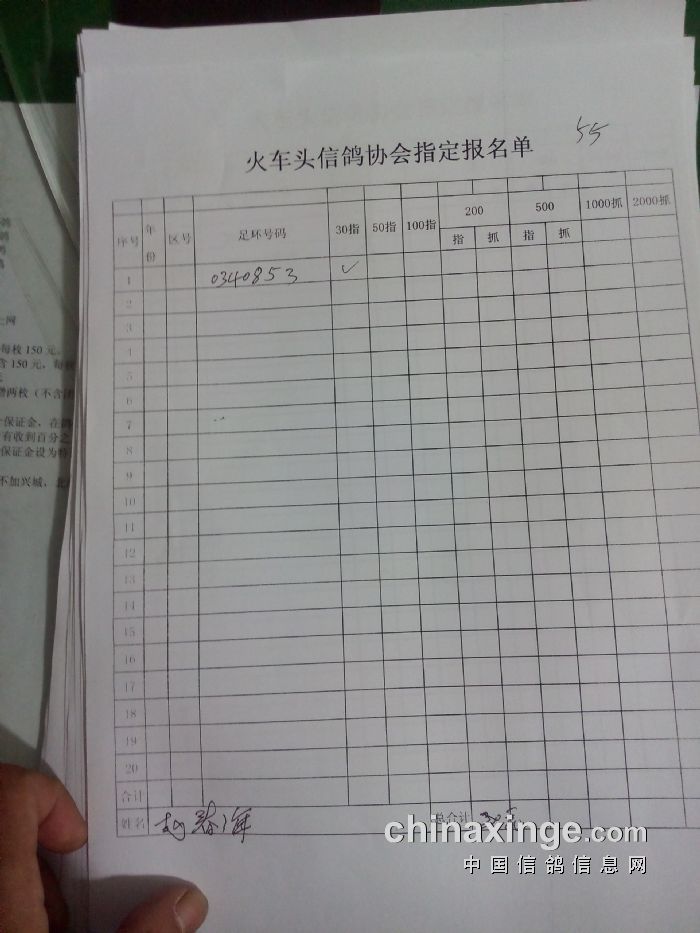 55
火车头信鸽协会指定报名单
序号 年份 区号 足环号码 30指 50指 100指 200 500 1000抓 2000抓
指 抓 指 抓
1 0340853 ✓
2
3
4
5
6
7
8
9
10
11
12
13
14
15
16
17
18
19
20
合计
姓名 总合计
上网
每枚150元。
含150元，每
赠两枚（不含
保证金，在
有收到百分之
保证金设为特
不加兴城、北
chinaxinge.com
中国信鸽信息网